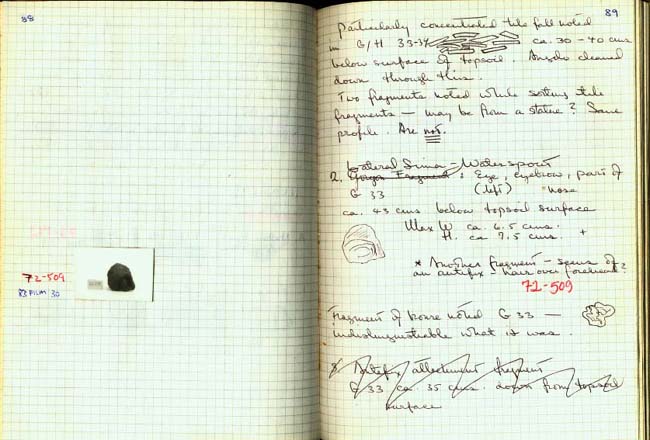 88
72-509
83 FILM 30
89
Particularly concentrated tile fall noted
in G/H 33-34 ca. 30-40 cms
below surface of topsoil. cleaned
down through this.
Two fragments noted while sorting tile
fragments — may be from a statue? Same
profile. Are not.
Lateral Sima - Waterspout
2. Gorgon Fragment : Eye, eyebrow, part of
G 33 (left) nose
ca. 43 cms below topsoil surface
Max W ca. 6.5 cms.
H. ca 9.5 cms. +
* Another fragment - seems of
an antefix - hair over forehead?
72-509
Fragment of bone noted G 33 —
indistinguishable what it was.
3 Antefix attachment fragment
G 33 ca 35 cms. down from topsoil
surface